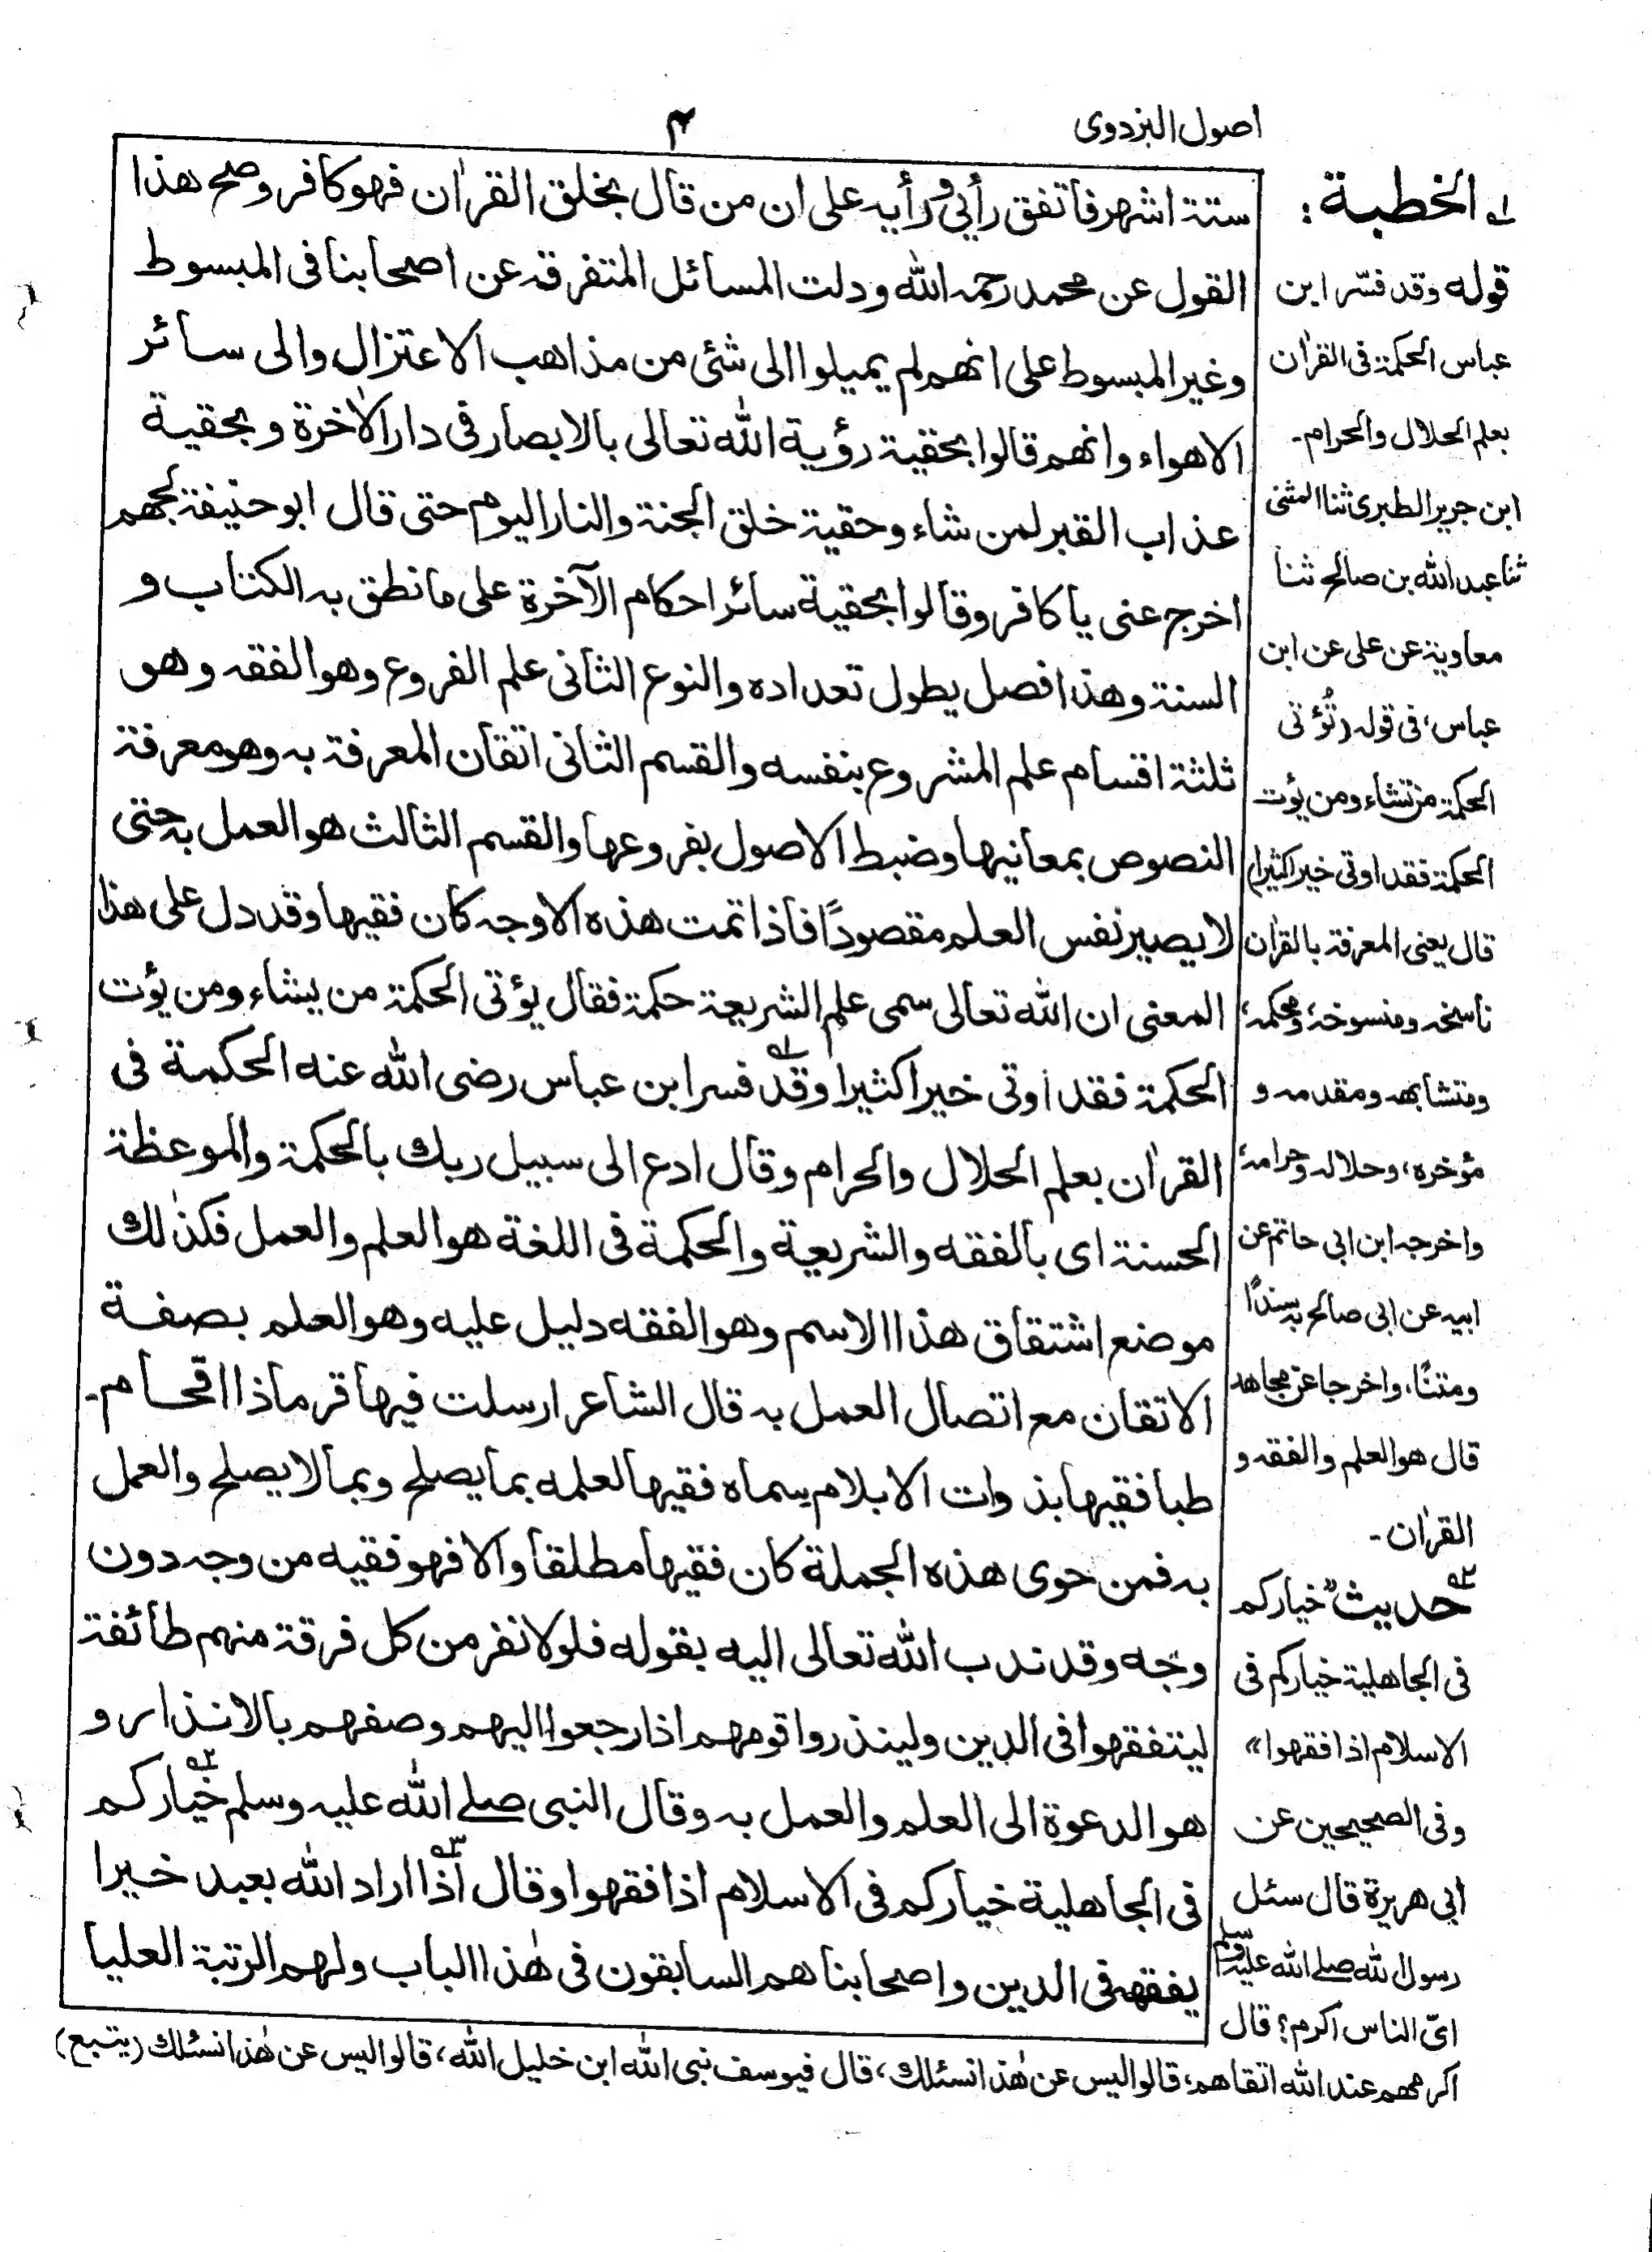 اصول البزدوی
۴
ستة اشهر فاتفق رأیی ورأیه علی ان من قال بخلق القراٰن فهو کافر وصح هذا
القول عن محمد رحمه الله ودلت المسائل المتفرقه عن اصحابنا فی المبسوط
وغیر المبسوط علی انهم لم یمیلوا الی شئی من مذاهب الاعتزال والی سائر
الاهواء وانهم قالوا بحقیة رؤیة الله تعالی بالابصار فی دار الاٰخرة وبحقیة
عذاب القبر لمن شاء وحقیة خلق الجنة والنار الیوم حتی قال ابو حنیفة لجهم
اخرج عنی یا کافر وقالوا بحقیة سائر احکام الآخرة علی ما نطق به الکتاب و
السنة وهذا فصل یطول تعداده والنوع الثانی علم الفروع وهو الفقه وهو
ثلثة اقسام علم المشروع بنفسه والقسم الثانی اتقان المعرفة به وهو معرفة
النصوص بمعانیها وضبط الاصول بفروعها والقسم الثالث هو العمل به حتی
لا یصیر نفس العلم مقصودًا فاذا تمت هذه الاوجه کان فقیها وقد دل علی هذا
المعنی ان الله تعالی سمی علم الشریعة حکمة فقال یؤتی الحکمة من یشاء ومن یؤت
الحکمة فقد اوتی خیرا کثیرا وقد۱؎ فسر ابن عباس رضی الله عنه الحکمة فی
القراٰن بعلم الحلال والحرام وقال ادع الی سبیل ربك بالحکمة والموعظة
الحسنة ای بالفقه والشریعة والحکمة فی اللغة هو العلم والعمل فکذٰلك
موضع اشتقاق هذا الاسم وهو الفقه دلیل علیه وهو العلم بصفة
الاتقان مع اتصال العمل به قال الشاعر ارسلت فیها قرما ذا اقحام۔
طبا فقیها بذوات الابلام سماه فقیها لعلمه بما یصلح وبما لا یصلح والعمل
به فمن حوی هذه الجملة کان فقیها مطلقا والا فهو فقیه من وجه دون
وجه وقد ندب الله تعالی الیه بقوله فلولا نفر من کل فرقة منهم طائفة
لیتفقهوا فی الدین ولینذروا قومهم اذا رجعوا الیهم وصفهم بالانذار و
هو الدعوة الی العلم والعمل به وقال النبی صلے الله علیه وسلم خیارکم۲؎
فی الجاهلیة خیارکم فی الاسلام اذا فقهوا وقال اذا۳؎ اراد الله بعبد خیرا
یفقهه فی الدین واصحابنا هم السابقون فی هٰذا الباب ولهم الرتبة العلیا
۱؎ الخطبة:
قوله وقد فسّر ابن
عباس الحکمة فی القراٰن
بعلم الحلال والحرام۔
ابن جریر الطبری ثنا المثنی
ثنا عبد الله بن صالح ثنا
معاویة عن علی عن ابن
عباس، فی قوله (تُؤتی
الحکمة من تشاء ومن یؤت
الحکمة فقد اوتی خیرا کثیرا)
قال یعنی المعرفة بالقراٰن
ناسخه ومنسوخه، ومحکمه،
ومتشابهه ومقدمه و
مؤخره، وحلاله وحرامه،
واخرجه ابن ابی حاتم عن
ابیه عن ابی صالح به سندًا
ومتنًا، واخرجا عن مجاهد
قال هو العلم والفقه و
القراٰن۔
۲؎ حدیث "خیارکم
فی الجاهلیة خیارکم فی
الاسلام اذا فقهوا»
وفی الصحیحین عن
ابی هریرة قال سئل
رسول الله صلے الله علیه وسلم
ایّ الناس اکرم؟ قال
اکرمهم عند الله اتقاهم، قالوا لیس عن هٰذا نسئلك، قال فیوسف نبی الله ابن خلیل الله، قالوا لیس عن هٰذا نسئلك (یتبع)